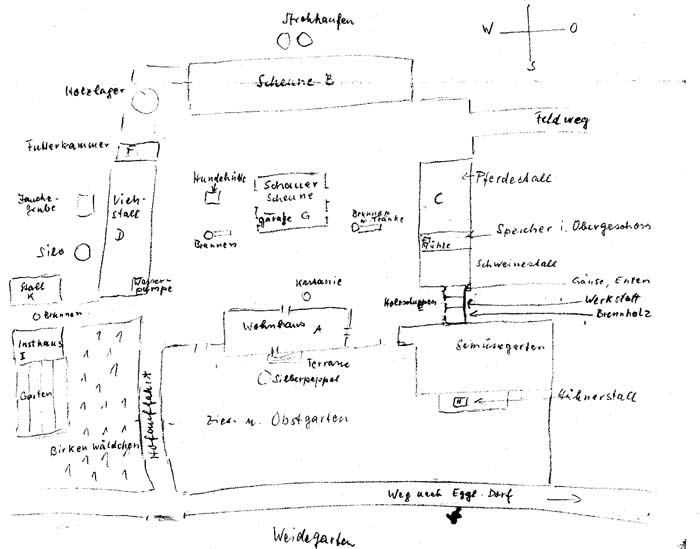 Strohhaufen
W O
S
Scheune B
Holzlager
Feldweg
Futterkammer
F
Pferdestall
Hundehütte
Schauer
Scheune
garage G
C
Jauche-
grube
Vieh-
stall
D
Brunnen
m. Tränke
Speicher i. Obergeschoss
Brunnen
Mühle
Silo
Schweinestall
Stall
K
Wasser-
pumpe
Kastanie
Gänse, Enten
Holzschuppen
Werkstatt
Brennholz
Brunnen
Wohnhaus A
Insthaus
I
Gemüsegarten
Terrasse
Silberpappel
Garten
Hofauffahrt
H
Hühnerstall
Zier- u. Obstgarten
Birken wäldchen
Weg nach Eggl. Dorf
Weidegarten